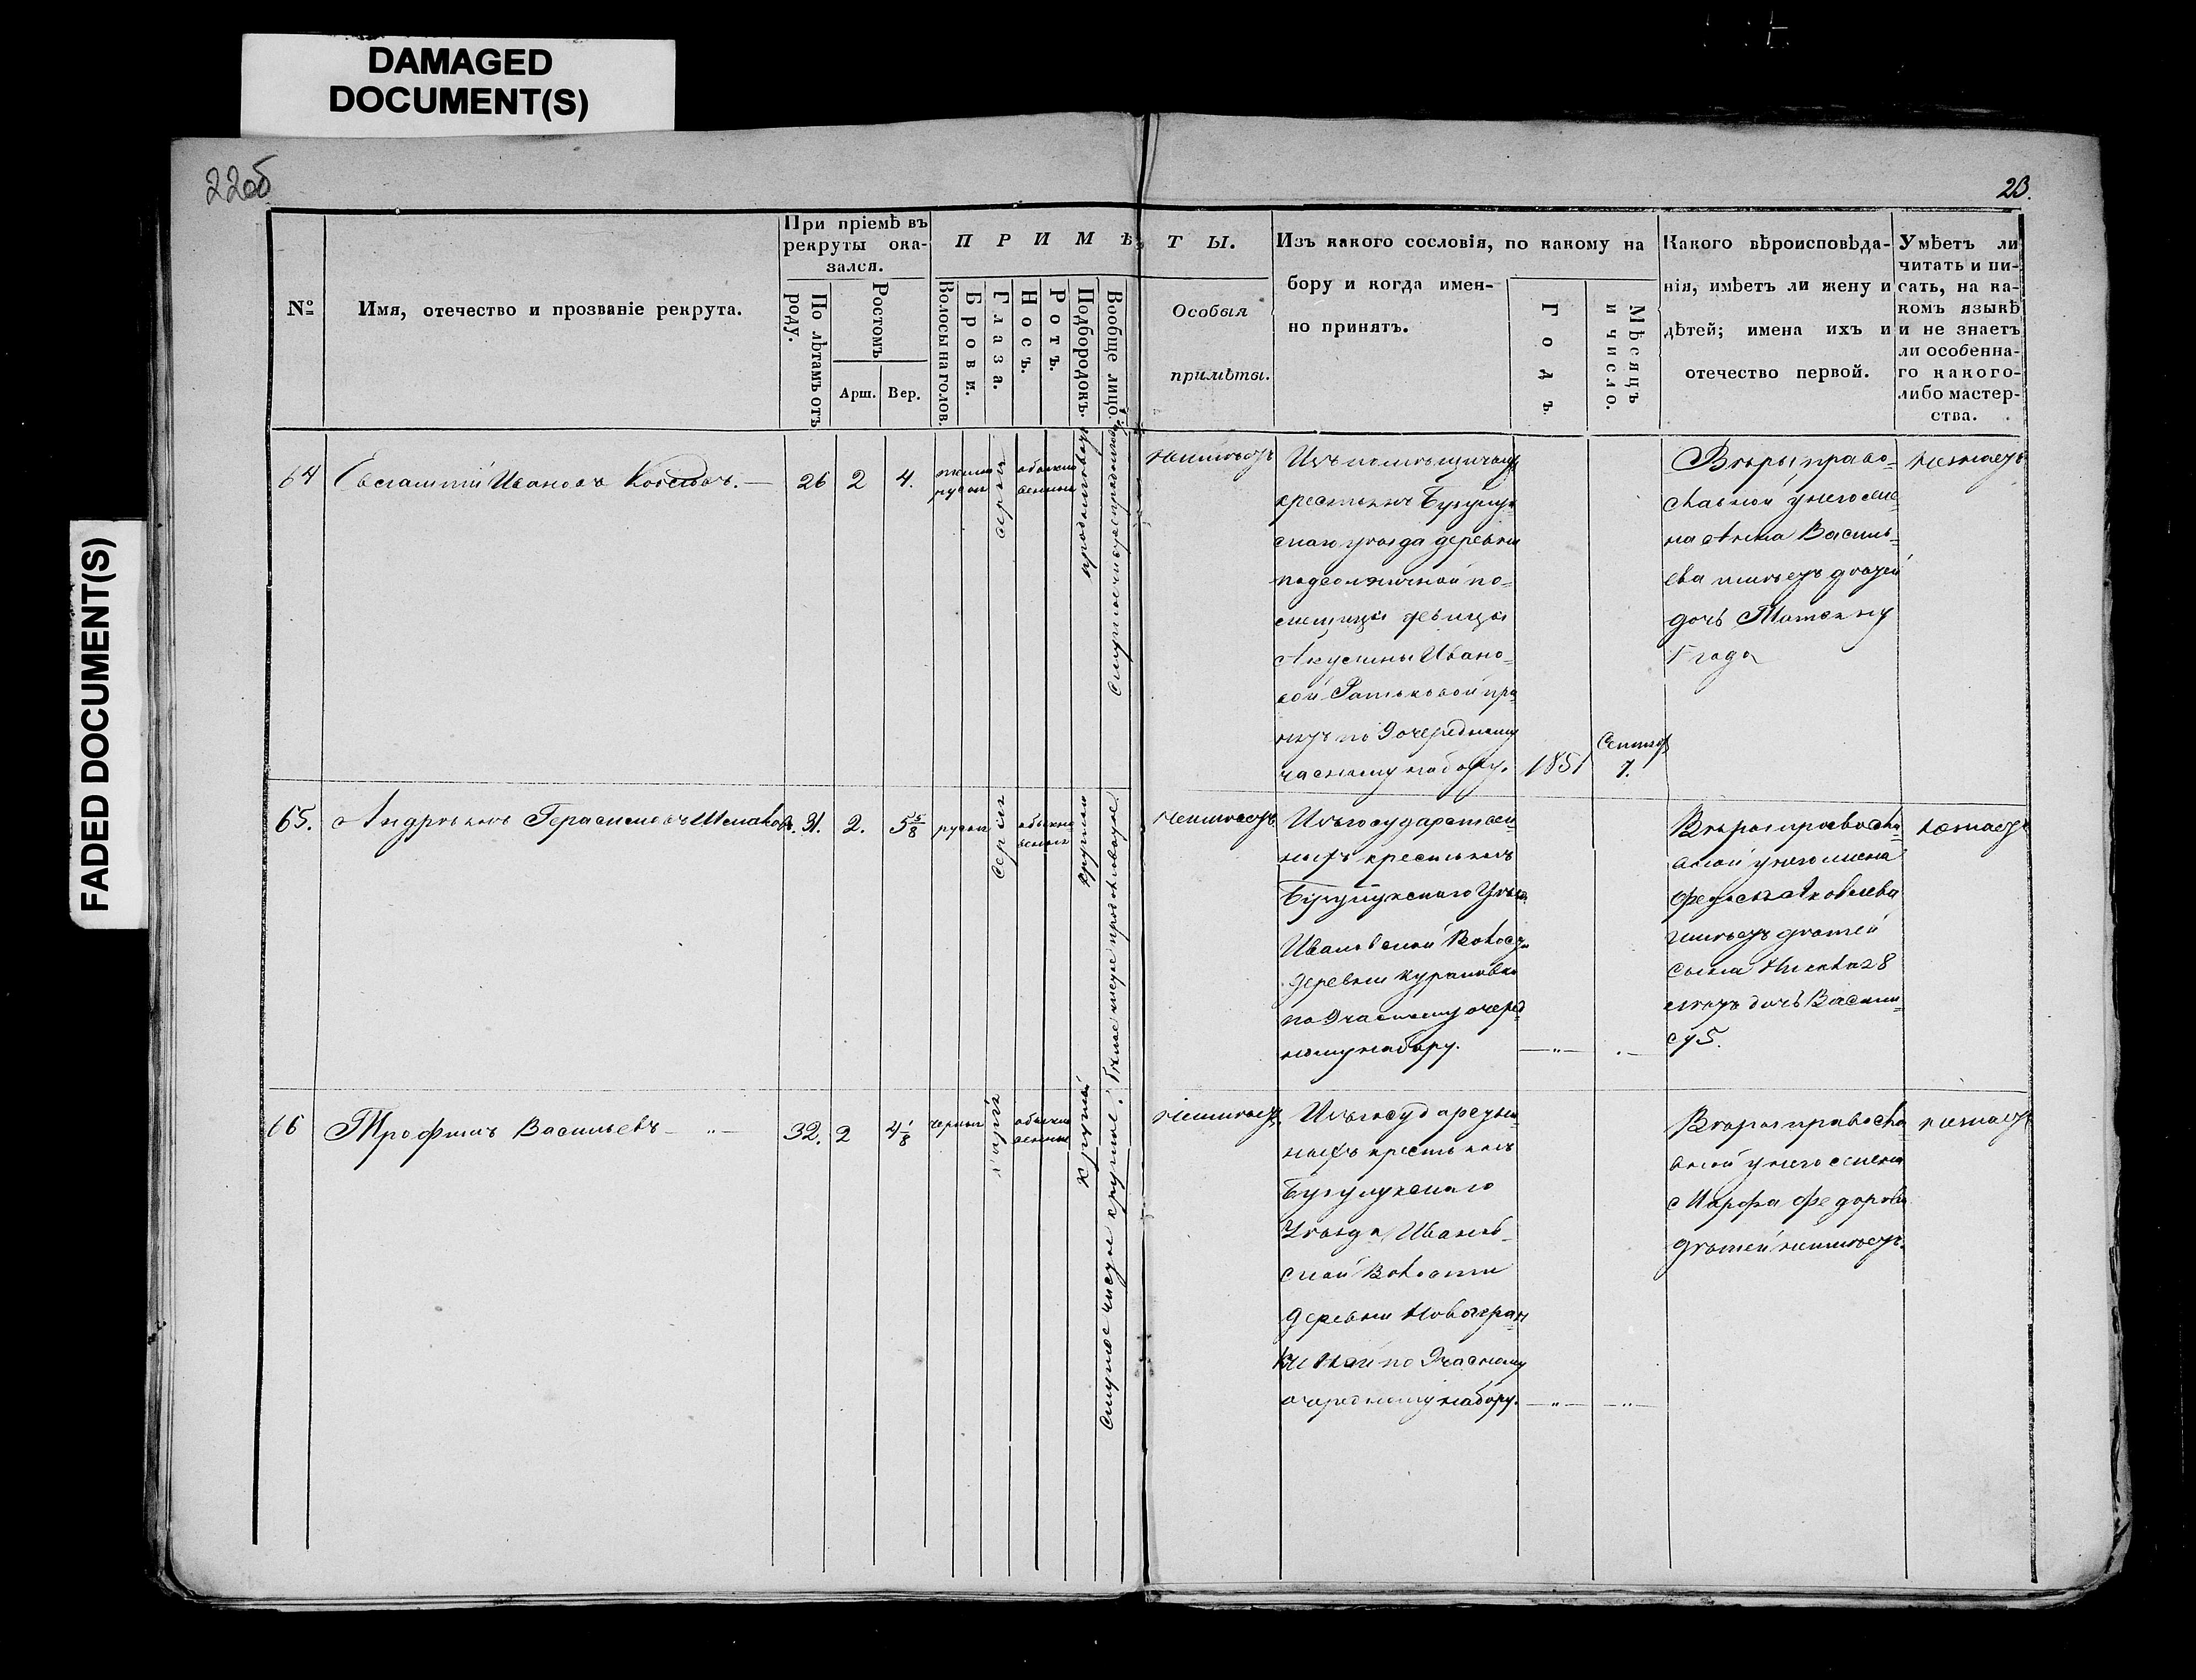 DAMAGED
DOCUMENT(S)
FADED DOCUMENT(S)
22об
23.
№
Имя, отечество и прозваніе рекрута.
При пріемѣ въ
рекруты ока-
зался.
По лѣтамъ отъ
роду.
Ростомъ
Арш.
Вер.
ПРИМѢТЫ.
Волосы на голов.
Брови.
Глаза.
Носъ.
Ротъ.
Подбородокъ.
Вообще лицо.
Особыя
примѣты.
Изъ какого сословія, по какому на
бору и когда имен-
но принятъ.
Годъ.
Мѣсяцъ
и число.
Какого вѣроисповѣда-
нія, имѣетъ ли жену и
дѣтей; имена ихъ и
отечество первой.
Умѣетъ ли
читать и пи-
сать, на ка-
комъ языкѣ
и не знаетъ
ли особенна-
го какого-
либо мастер-
ства.
64
Евстафій Ивановъ
26
2
4.
темно
русыя
серыя
обыкно
венные
продолговат
неимѣетъ
Изъ помѣщичьихъ
крестьянъ Бугурус
лан уѣзда деревни
по-
мещицы девицы
Ивано-
вой пра
по 9 очередному
частному набору.
1851
Сентяб
7.
Вѣры право-
славной у него же-
на Анна Василь-
ева имѣетъ детей
дочь Татьяну
1 года
незнаетъ
65.
Андреянъ Герасимовъ
31.
2.
5 5/8
русыя
серыя
обыкно
венныя
круглый
неимѣетъ
Изъ государствен-
ныхъ крестьянъ
Бугурусланского Уѣзд.
Ивановской Волост
деревни
по 9 частному очеред
ному набору.
—„—
Вѣры правосла
вной у него жена
Яковлева
имѣетъ детей
сына 8
летъ дочь Васили-
су 5.
незнаетъ
66
Трофимъ Васильевъ —„—
32.
2
4 1/8
черныя
карія
обыкно
венные
круглый
Смуглое чистое круглое.
неимѣетъ
Изъ государствен
ныхъ крестьянъ
Бугурусланского
Уѣзда Иванов-
ской Волости
деревни
по 9 частному
очередному набору.
—„—
—„—
Вѣры правосла
вной у него жена
Марфа Федорова
детей неимѣетъ.
незнаетъ